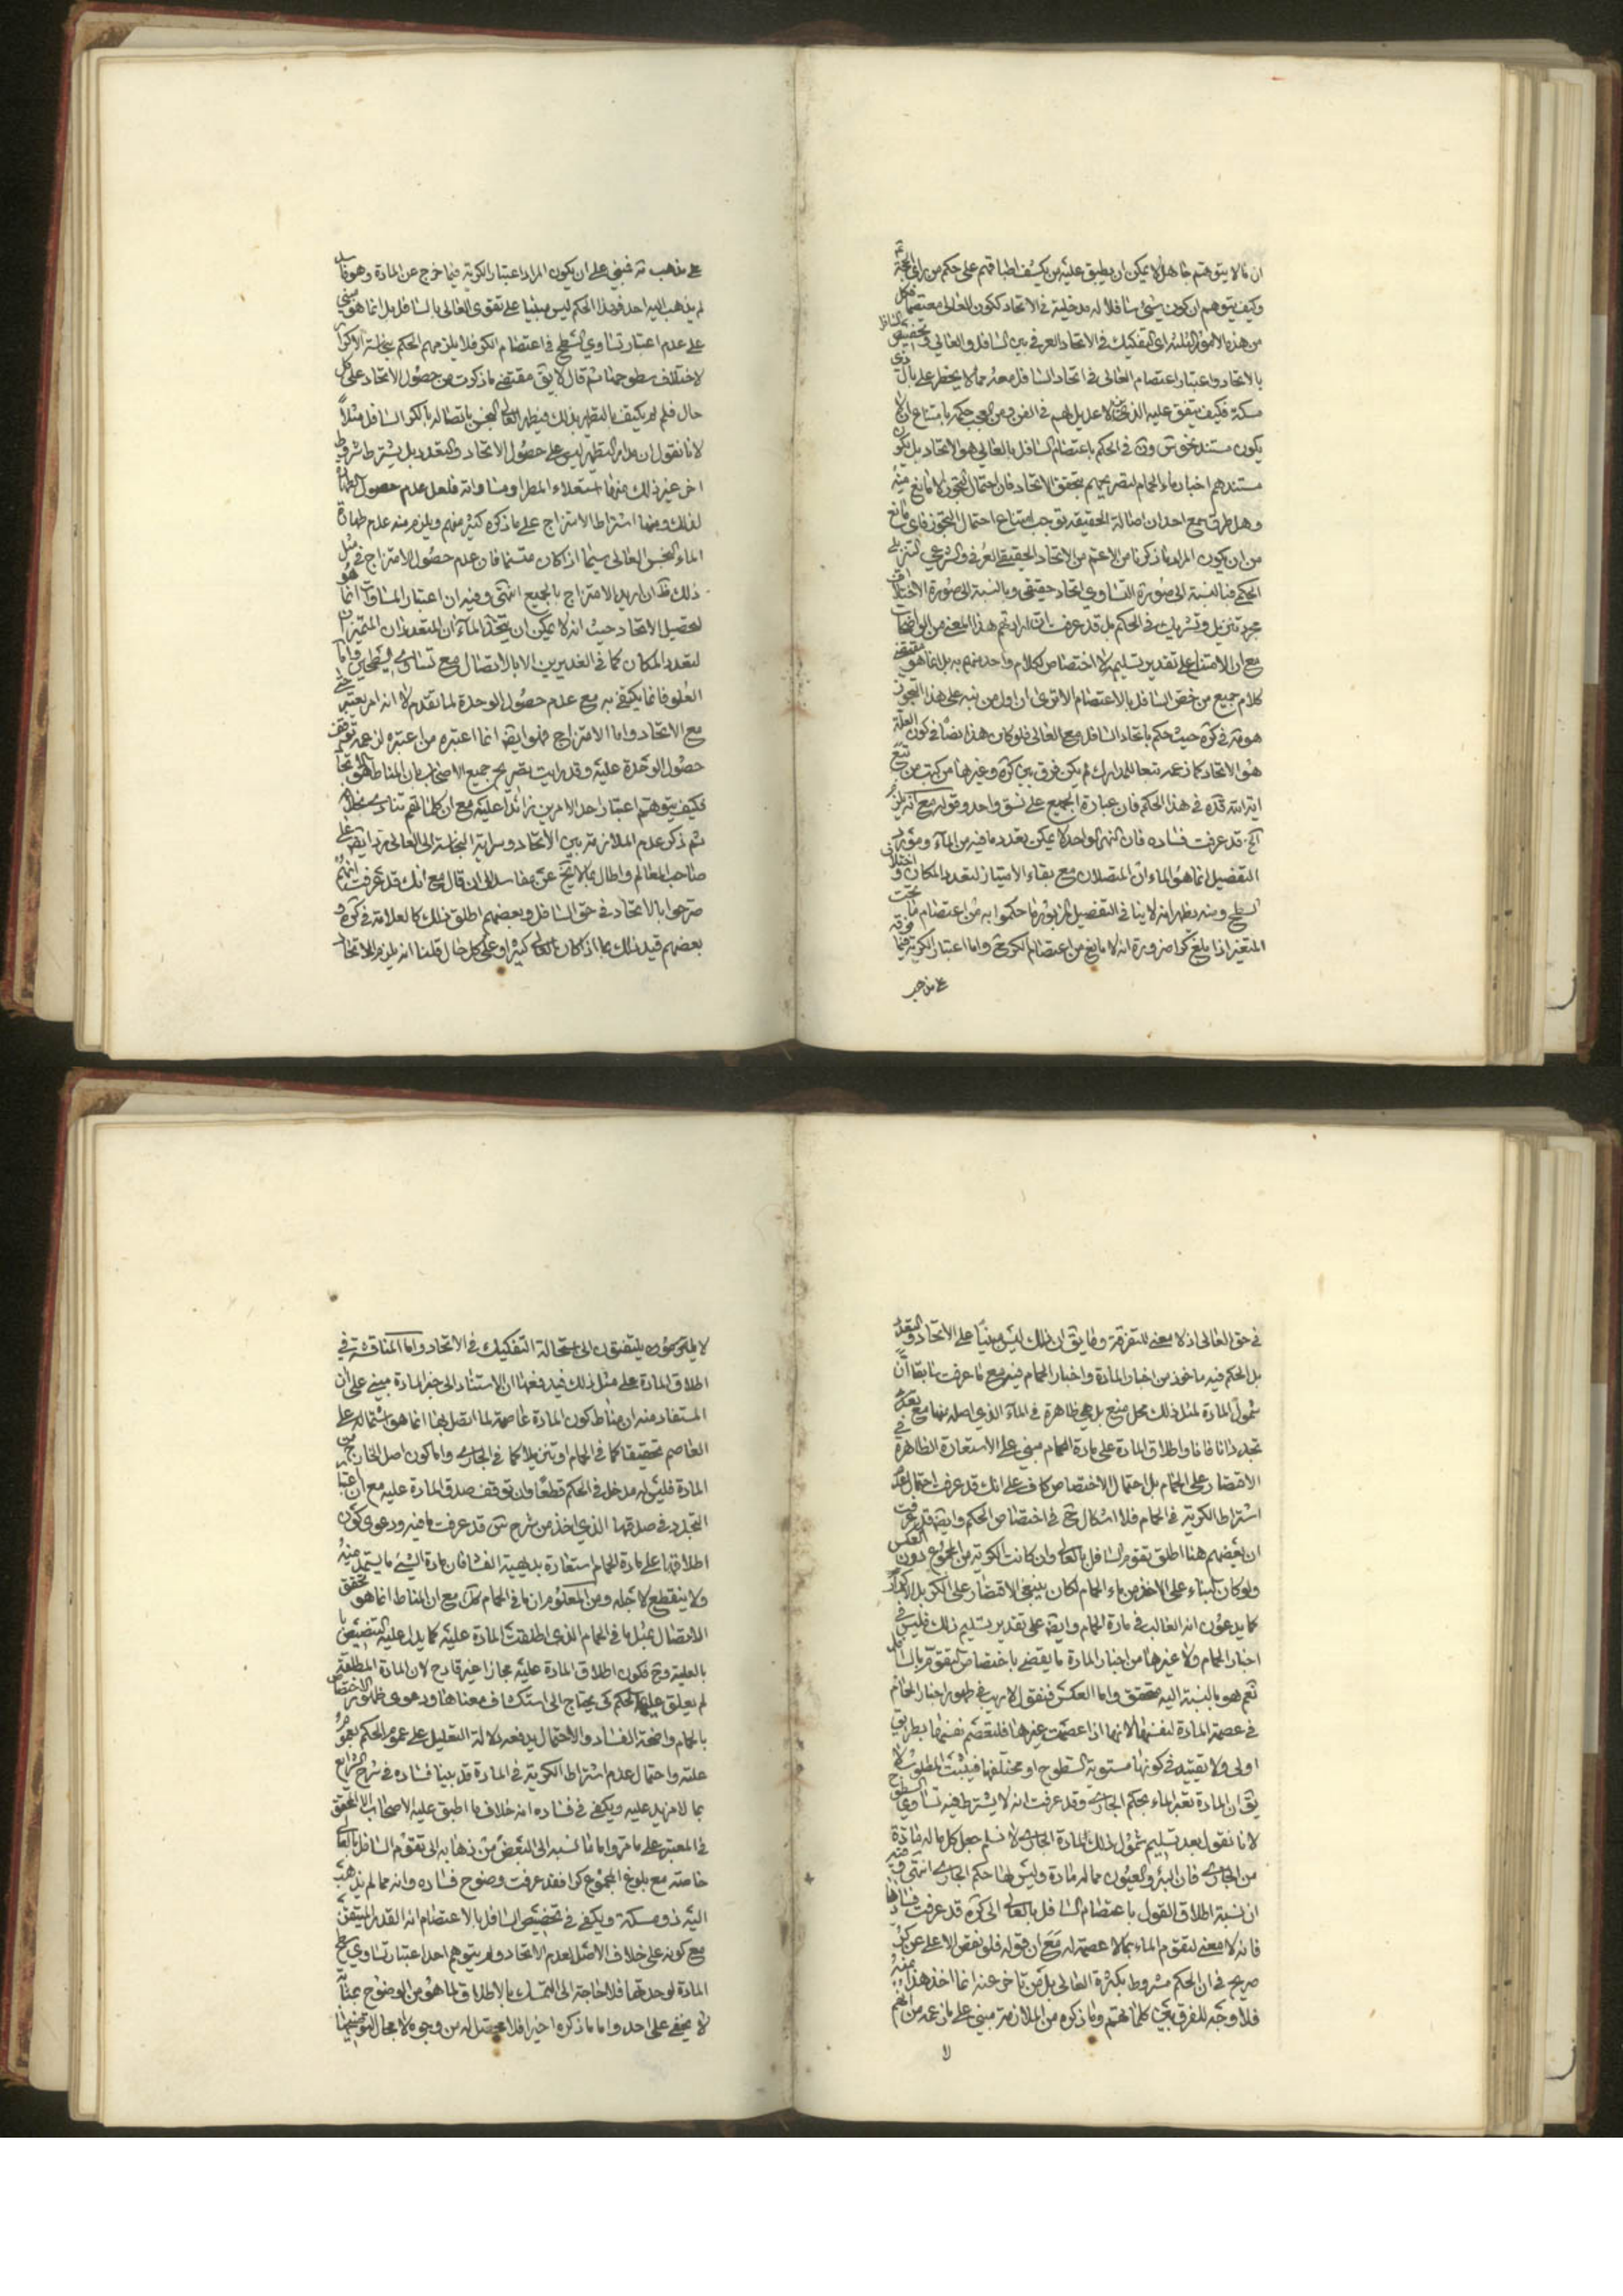 ان ما لا يتوهم جاهل لا يمكن ان يطبق عليه من يكشف اطباقهم على حكم من رأى الحجة
وكيف يتوهم ان كون شئ سافلا له مدخلية في الاتحاد ككون العالى معتصما فكل
من هذه الامور الثلثة اى التفكيك في الاتحاد العرفي بين السافل والعالى وتخصيص السافل
بالاتحاد واعتبار اعتصام العالى في اتحاد السافل معه مما لا يخطر على بال ذى
مسكة فكيف يتفق عليه الذين لا عديل لهم في الفن ومن العجب حكمه بامتناع ان لا
يكون مستند خوض في الحكم باعتصام السافل بالعالى هو الاتحاد بل يكون
مستندهم اخبار ماء الحمام لتصريحهم بتحقق الاتحاد فان احتمال التجوز لا مانع منه
وهل طرق سمع احد ان اصالة الحقيقة توجب امتناع احتمال التجوز فاى مانع
من ان يكون المراد ما ذكرنا من الاعم من الاتحاد الحقيقى العرفى والشرعى التنزيلى
الحكمى فبالنسبة الى صورة التساوى اتحاد حقيقى وبالنسبة الى صورة الاختلاف
مجرد تنزيل وتشريك في الحكم بل قد عرفت ان ارادتهم هذا المعنى من الواضحات
مع ان الامتناع على تقدير تسليمه لا اختصاص لكلام واحد منهم به بل انما هو مقتضى
كلام جميع من خص السافل بالاعتصام الا ترى ان اول من نبه على هذا التجوز
هو في كره حيث حكم باتحاد السافل مع العالى فلو كان هذا نصا في كون العلة
هو الاتحاد كما زعمه تبعا للمدارك لم يكن فرق بين كره وغيرها من كتب من تبع
اية الله قده في هذا الحكم فان عبارة الجميع على نسق واحد وقوله مع انه يلزم
آلخ قد عرفت فساده فان النهر الواحد لا يمكن تعدد ما فيه من الماء ومورد
التفصيل انما هو الماءان المتصلان مع بقاء الامتياز لتعدد المكان واختلاف
السطح ومنه يظهر انه لا ينافى التفصيل المزبور ما حكموا به من اعتصام ما تحت
المتغير اذا بلغ كرا ضرورة انه لا مانع من اعتصام الكر وح واما اعتبار الكرية فيما فوقه
على مذهب
على مذهب فمبنى على ان يكون المراد اعتبار الكرية فيما خرج عن المادة وهو
لم يذهب اليه احد فهذا الحكم ليس مبنيا على تقوى العالى بالسافل بل انما هو مبنى
على عدم اعتبار تساوى السطح في اعتصام الكر فلا يلزمهم الحكم بنجاسة الاكرار
لاختلاف سطوحها ثم قال لا يق مقتضى ما ذكرت من حصول الاتحاد على كل
حال فلم لم يكتف بالتطهير بذلك فيطهر العالى النجس باتصاله بالكر السافل مثلا
لانا نقول ان مدار التطهير ليس على حصول الاتحاد والتعدد بل يشترط شروط
اخر غير ذلك منها استعلاء المطهر او مساواته فلعل عدم حصول الطهارة
لذلك ومنها اشتراط الامتزاج على ما ذكره كثير منهم ويلزم منه عدم طهارة
الماء النجس العالى سيما اذا كان متسنما فان عدم حصول الامتزاج في مثل
ذلك ظ ان اريد الامتزاج بالجميع انتهى وفيه ان اعتبار المساواة انما هو
لتحصيل الاتحاد حيث انه لا يمكن ان يتحد الماءان المتعددان المتميزان
لتعدد المكان كما في الغديرين الا بالاتصال مع تساوى السطحين واما
العلو فانما يكتفى به مع عدم حصول الوحدة لما تقدم لا انه امر يعتبر حتى
مع الاتحاد واما الامتزاج فهو ايضا انما اعتبره من اعتبره لزعمه توقف
حصول الوحدة عليه وقد رايت تصريح جميع الاصحاب بان المناط هو الاتحاد
فكيف يتوهم اعتبار احد الامرين زائدا عليه مع ان كلماتهم تنادى بخلافه
ثم ذكر عدم الملازمة بين الاتحاد وسراية النجاسة الى العالى ردا على
صاحب المعالم واطال بما لا يخ عن مفاسد الى ان قال مع انك قد عرفت انهم
صرحوا بالاتحاد في حق السافل وبعضهم اطلق ذلك كالعلامة في كره و
بعضهم قيد ذلك بما اذا كان العالى كثيرا وعلى كل حال قلنا انه يلزم الاتحاد
في حق العالى اذ لا معنى للتفرقة وما يق ان ذلك ليس مبنيا على الاتحاد والتعدد
بل الحكم فيه ماخوذ من اخبار المادة واخبار الحمام فيه مع ما عرفت سابقا ان
شمول المادة لمثل ذلك محل منع بل هى ظاهرة في الماء الذى اصله منها مع
تجدده انا فانا واطلاق المادة على مادة الحمام مبنى على الاستعارة الظاهرة في
الاقتصار على الحمام بل احتمال الاختصاص كاف على انك قد عرفت احتمال عدم
اشتراط الكرية في الحمام فلا اشكال ح في اختصاص الحكم وايضا قد عرفت
ان بعضهم هنا اطلق تقوم السافل بالعالى وان كانت الكرية من المجموع دون العكس
ولو كان البناء على الاخذ من ماء الحمام لكان ينبغى الاقتصار على الكر بل الاكرار
كما يدعون انه الغالب في مادة الحمام وايضا على تقدير تسليم ذلك فليس في
اخبار الحمام ولا غيرها من اخبار المادة ما يقضى باختصاص التقوم بالسافل
نعم هو بالنسبة اليه متحقق واما العكس فنقول لا ريب في ظهور اخبار الحمام
في عصمة المادة لنفسها لانها اذا عصمت غيرها فلتعصم نفسها بطريق
اولى ولا تقييد في كونها مستوية السطوح او مختلفها فيثبت المطلوب لا
يق ان المادة تصير الماء بحكم الجارى وقد عرفت انه لا يشترط فيه تساوى السطوح
لانا نقول بعد تسليم شمول ذلك للمادة الجارى لا نسلم جعل كل ما له مادة
من الجارى فان البئر والعيون مما له مادة وليس لها حكم الجارى انتهى وفيه
ان نسبة اطلاق القول باعتصام السافل بالعالى الى كره قد عرفت فسادها
فانه لا معنى لتقوم الماء بما لا عصمة له مع ان قوله فلو نقص الاعلى عن كر
صريح في ان الحكم مشروط بكثرة العالى بل من تاخر عنه انما اخذ هذا منه
فلا وجه للفرق بين كلماتهم وما ذكره من الملازمة مبنى على ما زعمه من انهم
لا
لا يلتفتون الى استحالة التفكيك في الاتحاد واما المناقشة في
اطلاق المادة على مثل ذلك فيدفعها ان الاستناد الى خبر المادة مبنى على ان
المستفاد منه ان مناط كون المادة عاصمة لما اتصل بها انما هو اشتماله على
العاصم تحقيقا كما في الحمام او تنزيلا كما في الجارى واما كون اصل الخارج من
المادة فليس له مدخل في الحكم قطعا وان توقف صدق المادة عليه مع ان اعتبار
التجدد في صدقها الذى اخذ من شرح س قد عرفت ما فيه ودعوى كون
اطلاقها على مادة الحمام استعارة بديهية الفساد فان مادة الشئ ما يستمد منه
ولا ينقطع لاجله ومن المعلوم ان ما في الحمام كك مع ان المناط انما هو تحقق
الاتصال بمثل ما في الحمام الذى اطلقت المادة عليه كما يدل عليه التنصيص
بالعلية وح فكون اطلاق المادة عليه مجازا غير قادح لان المادة المطلقة
لم يعلق عليها الحكم كى يحتاج الى استكشاف معناها ودعوى ظهور الاختصاص
بالحمام واضحة الفساد والاحتمال يدفعه دلالة التعليل على عموم الحكم بعموم
علته واحتمال عدم اشتراط الكرية في المادة قد بينا فساده في شرح الشرايع
بما لا مزيد عليه ويكفى في فساده انه خلاف ما اطبق عليه الاصحاب الا المحقق
في المعتبر على ما مر واما ما نسبه الى البعض من ذهابه الى تقوم السافل بالعالى
خاصة مع بلوغ المجموع كرا فقد عرفت وضوح فساده وانه مما لم يذهب
اليه ذو مسكة ويكفى في تخصيص السافل بالاعتصام انه القدر المتيقن
مع كونه على خلاف الاصل لعدم الاتحاد ولم يتوهم احد اعتبار تساوى سطح
المادة لوحدتها فلا حاجة الى التمسك بالاطلاق لما هو من الوضوح بمثابة
لا يخفى على احد واما ما ذكره اخيرا فلا محصل له من وجوه لا مجال لتوضيحها